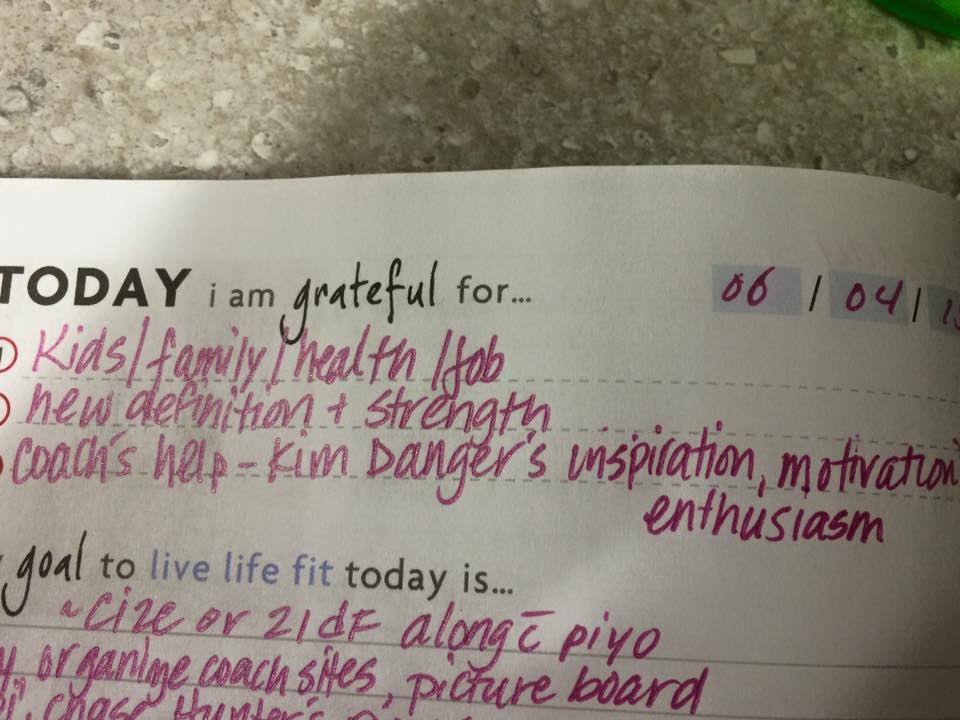 TODAY i am grateful for... 06 / 04 / 15
Kids/family/health/Job
new definition + strength
coach's help - Kim Danger's inspiration, motivation
enthusiasm
goal to live life fit today is...
~ Cize or 21 dF along c̄ piyo
organize coach sites, picture board
chase Hunter's